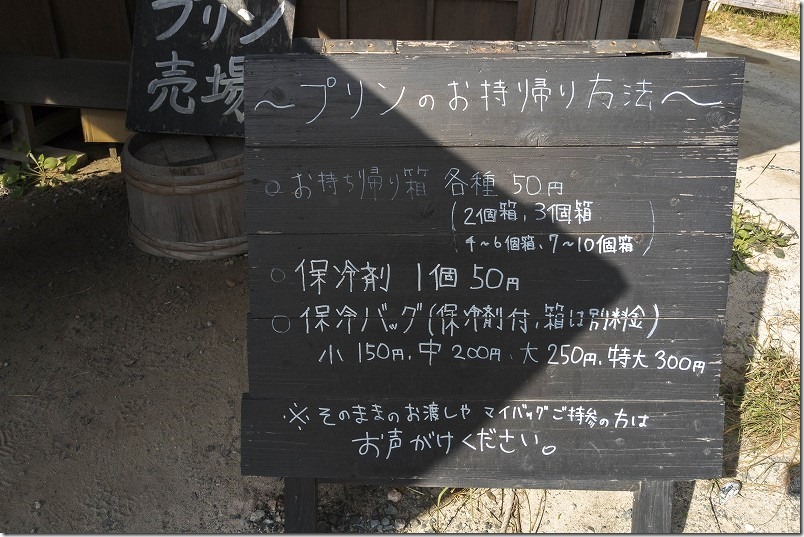 プリン
売場
～プリンのお持帰り方法～
○お持ち帰り箱 各種 50円
(2個箱、3個箱
4～6個箱、7～10個箱)
○ 保冷剤 1個 50円
○ 保冷バッグ(保冷剤付、箱は別料金)
小 150円、中 200円、大 250円、特大 300円
※そのままのお渡しや マイバッグご持参の方は
お声がけください。